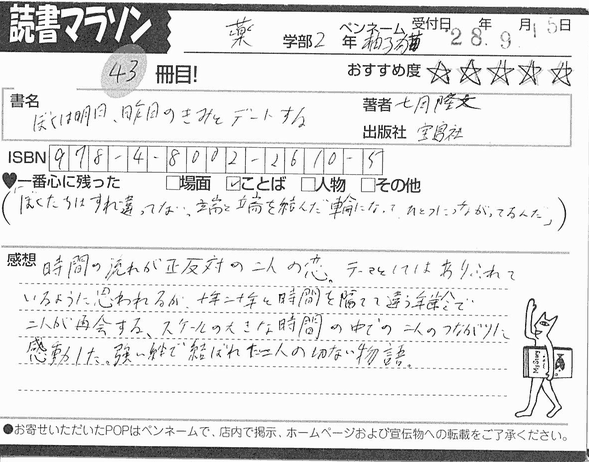 読書マラソン
薬 学部 2 年 ペンネーム 柚子猫 受付日 28年 9月 15日
43 冊目! おすすめ度 ☆☆☆☆☆
書名 ぼくは明日、昨日のきみとデートする
著者 七月隆文
出版社 宝島社
ISBN 978-4-8002-2610-5
♥一番心に残った □場面 ☑ことば □人物 □その他
(「ぼくたちはすれ違ってない、端と端を結んだ輪になって、ひとつにつながってるんだ」)
感想 時間の流れが正反対の二人の恋。テーマとしてはありふれて
いるように思われるが、十年二十年と時間を隔てて違う年齢で
二人が再会する、スケールの大きな時間の中での二人のつながりに
感動した。強い絆で結ばれた二人の切ない物語。
●お寄せいただいたPOPはペンネームで、店内で掲示、ホームページおよび宣伝物への転載をご了承ください。